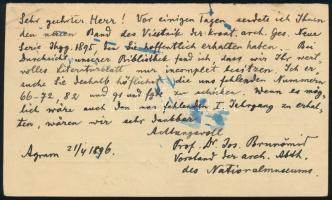 Sehr geehrter Herr! Vor einigen Tagen sendete ich Ihnen
den neuen Band des Viestnik der kroat. arch. Ges. Neue
Serie Jhgg. 1895, den Sie hoffentlich erhalten haben. Bei
Durchsicht unserer Bibliothek fand ich, dass wir Ihr wert-
volles Literaturblatt nur incomplett besitzen. Ich er-
suche Sie deshalb höflichst, die uns fehlenden Nummern
66-72, 82 und 90 und fgd. zu schicken. Wenn es mög-
lich wäre auch den uns fehlenden I. Jahrgang zu erhal-
ten, wären wir sehr dankbar.
Achtungsvoll
Agram 21/4 1896. Prof. Dr. Jos. Brunšmid
Vorstand der arch. Abth.
des Nationalmuseums.